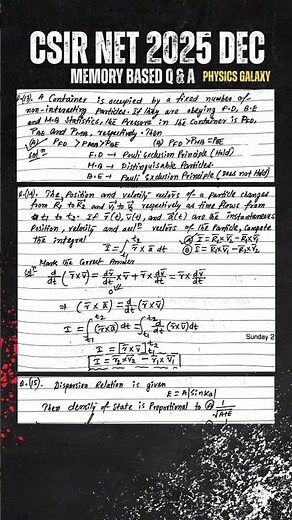 CSIR NET 2025 DEC
MEMORY BASED Q & A PHYSICS GALAXY
Q-(13). A Container is occupied by a fixed number of
non-interacting Particles. If they are obeying F-D, B-E
and M-B Statistics, the Pressure in the Container is P_FD,
P_BE and P_MB, respectively. Then
(A) P_FD > P_MB > P_BE (B) P_FD > P_MB = P_BE
Solⁿ F.D → Pauli Exclusion Principle (Hold)
M-B → Distinguishable Particles
B-E → Pauli Exclusion Principle (Does not Hold)
Q-(14). The Position and velocity vectors of a Particle changes
from R⃗₁ to R⃗₂ and v⃗₁ to v⃗₂ respectively as time flows from
t₁ to t₂. If r⃗(t), v⃗(t), and a⃗(t) are the instantaneous
Position, velocity and accⁿ vectors of the Particle, Compute
the integral
I = ∫ (r⃗ × a⃗ dt
Mark the Correct Answer
d/dt (r⃗×v⃗) = dr⃗/dt × v⃗ + r⃗ × dv⃗/dt = r⃗ × dv⃗/dt
⇒ (r⃗ × a⃗) = d/dt (r⃗×v⃗)
I = ∫ (r⃗×a⃗) dt = ∫ d/dt (r⃗×v⃗) dt
Sunday 2
I = [r⃗×v⃗]
I = r⃗₂×v⃗₂ − r⃗₁×v⃗₁
Q.(15). Dispersion Relation is given
E = A|Sinka|
Then density of State is Proportional to (A) 1/√A+E